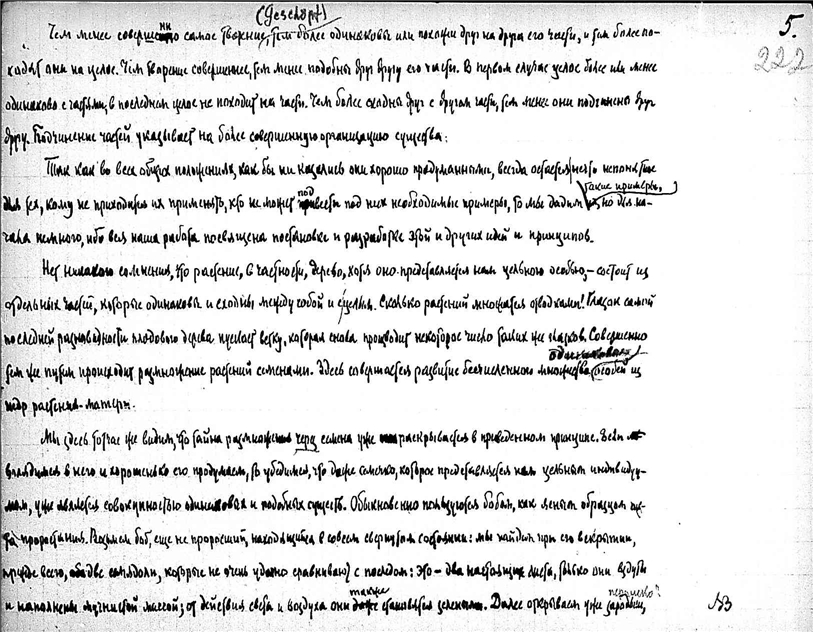 (Geschöpf)
5.
222
Чем менее совершенно самое творение, тем более одинаковы или похожи друг на друга его части, и тем более по-
ходят они на целое. Чем творение совершеннее, тем менее подобны друг другу его части. В первом случае целое более или менее
одинаково с частями, в последнем целое не походит на части. Чем более сходны друг с другом части, тем менее они подчинены друг
другу. Подчинение частей указывает на более совершенную организацию существа.
Так как во всех общих положениях, как бы ни казались они хорошо продуманными, всегда остается нечто непонятное
для тех, кому не приходится их применять, кто не может подвести под них необходимые примеры, то мы дадим такие примеры, но для на-
чала немного, ибо вся наша работа посвящена постановке и разработке этой и других идей и принципов.
Нет никакого сомнения, что растение, в частности, дерево, хотя оно представляется нам цельною особью, – состоит из
отдельных частей, которые одинаковы и сходны между собой и с целым. Сколько растений множатся отводками! Глазок самой
последней разновидности плодового дерева пускает ветку, которая снова производит некоторое число таких же глазков. Совершенно
тем же путем происходит размножение растений семенами. Здесь совершается развитие бесчисленного множества одинаковых особей из
недр растения-матери.
Мы здесь тотчас же видим, что тайна размножения через семена уже раскрывается в приведенном принципе. Если
вглядимся в него и хорошенько его продумаем, то убедимся, что даже семечко, которое представляется нам цельным индивидуу-
мом, уже является совокупностью одинаковых и подобных существ. Обыкновенно пользуются бобом, как ясным образцом
прорастания. Возьмем боб, еще не проросший, находящийся в совсем свернутом состоянии: мы найдем при его вскрытии,
прежде всего, обе семядоли, которые не очень удачно сравнивают с последом: это – два настоящих листа, только они вздуты
и наполнены мучнистой массой; от действия света и воздуха они также становятся зелеными. Далее открываем уже